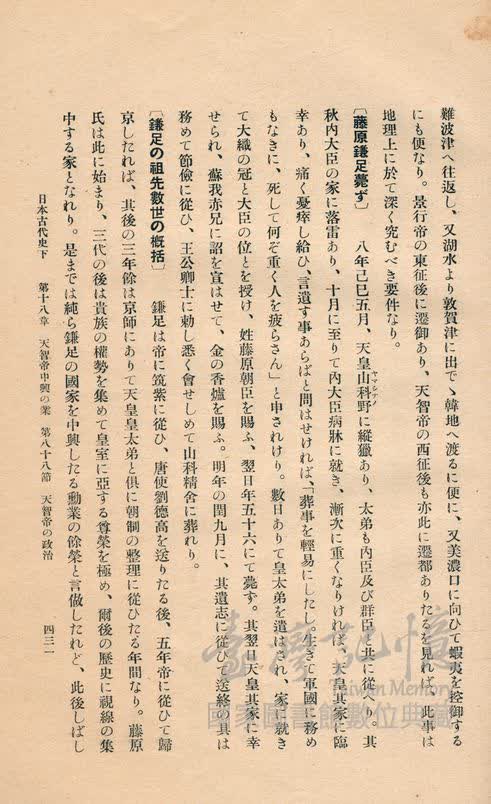 難波津へ往返し、又湖水より敦賀津に出でゝ韓地へ渡るに便に、又美濃口に向ひて蝦夷を控御する
にも便なり。景行帝の東征後に遷御あり、天智帝の西征後も亦此に遷都ありたるを見れば、此事は
地理上に於て深く究むべき要件なり。
〔藤原鎌足薨ず〕 八年己巳五月、天皇山科野に縱獵あり、太弟も內臣及び群臣と共に從へり。其
ヤマシナノ
秋內大臣の家に落雷あり、十月に至りて內大臣病牀に就き、漸次に重くなりければ、天皇其家に臨
幸あり、痛く憂瘁し給ひ、言遺す事あらばと問はせければ、「葬事を輕易にしたし。生きて軍國に務め
もなきに、死して何ぞ重く人を疲らさん」と申されけり。數日ありて皇太弟を遣はされ、家に就き
て大織の冠と大臣の位とを授け、姓藤原朝臣を賜ふ、翌日年五十六にて薨ず。其翌日天皇其家に幸
せられ、蘇我赤兄に詔を宣はせて、金の香爐を賜ふ。明年の閏九月に、其遺志に從ひて送終の具は
務めて節儉に從ひ、王公卿士に勅し悉く會せしめて山科精舍に葬れり。
〔鎌足の祖先數世の槪括〕 鎌足は帝に筑紫に從ひ、唐使劉德高を送りたる後、五年帝に從ひて歸
京したれば、其後の三年餘は京師にありて天皇皇太弟と俱に朝制の整理に從ひたる年間なり。藤原
氏は此に始まり、三代の後は貴族の權勢を集めて皇室に亞する尊榮を極め、爾後の歷史に視線の集
中する家となれり。是までは純ら鎌足の國家を中興したる勳業の餘榮と言傚したれど、此後しばし
日本古代史下 第十八章 天智帝中興の業 第八十八節 天智帝の政治 四三一
臺灣記憶
Taiwan Memory
國家圖書館數位典藏